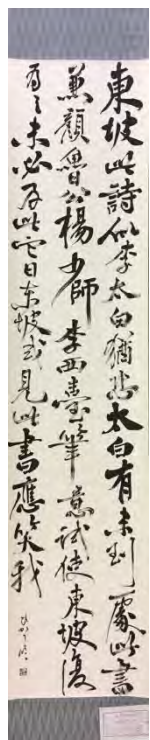 東坡此詩似李太白猶恐太白有未到處此書
兼顏魯公楊少師李西臺筆意試使東坡復
為之未必及此它日東坡或見此書應笑我